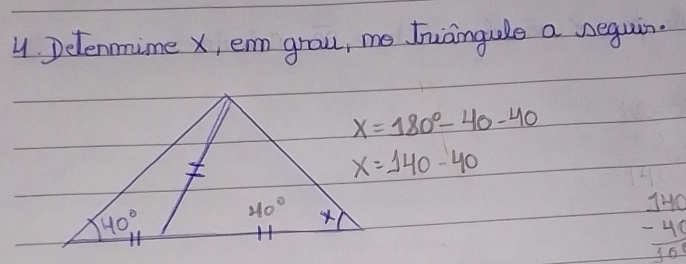 4. Determine x, em grau, no triângulo a seguir.
x = 180° - 40 - 40
x = 140 - 40
40°
40°
x
140
- 40